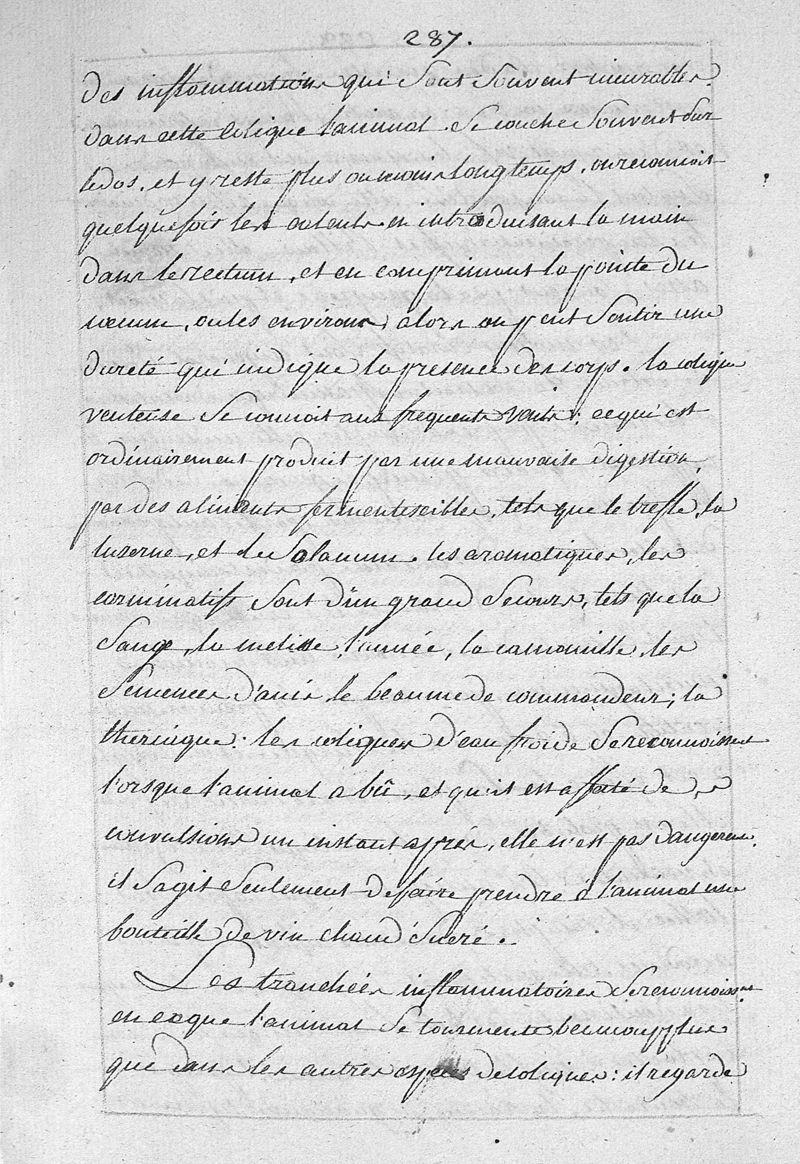 287.
des inflammations qui sont souvent incurables.
dans cette colique l'animal se couche souvent sur
le dos, et y reste plus ou moins longtemps, on reconnoit
quelquefois les calculs en introduisant la main
dans le rectum, et en comprimant la pointe du
coecum, ou les environs, alors on peut sentir une
dureté qui indique la presence des corps. la colique
venteuse se connoit aux frequents vents : ce qui est
ordinairement produit par une mauvaise digestion,
par des aliments fermentescibles, tels que le trefle, la
luzerne, et du les aromatiques, les
carminatifs sont d'un grand secours, tels que la
sauge, la melisse, l'aunée, la camomille, les
semences d'anis le beaume de commandeur; la
theriaque : les coliques d'eau froide se reconnoissent
lorsque l'animal a bû, et qu'il est affecté de
convulsions un instant après, elle n'est pas dangereuse.
il sagit seulement de faire prendre a l'animal une
bouteille de vin chaud sucré.
Les tranchées inflammatoires se reconnoissent
en ce que l'animal se tourmente beaucoup plus
que dans les autres especes de coliques : il régarde